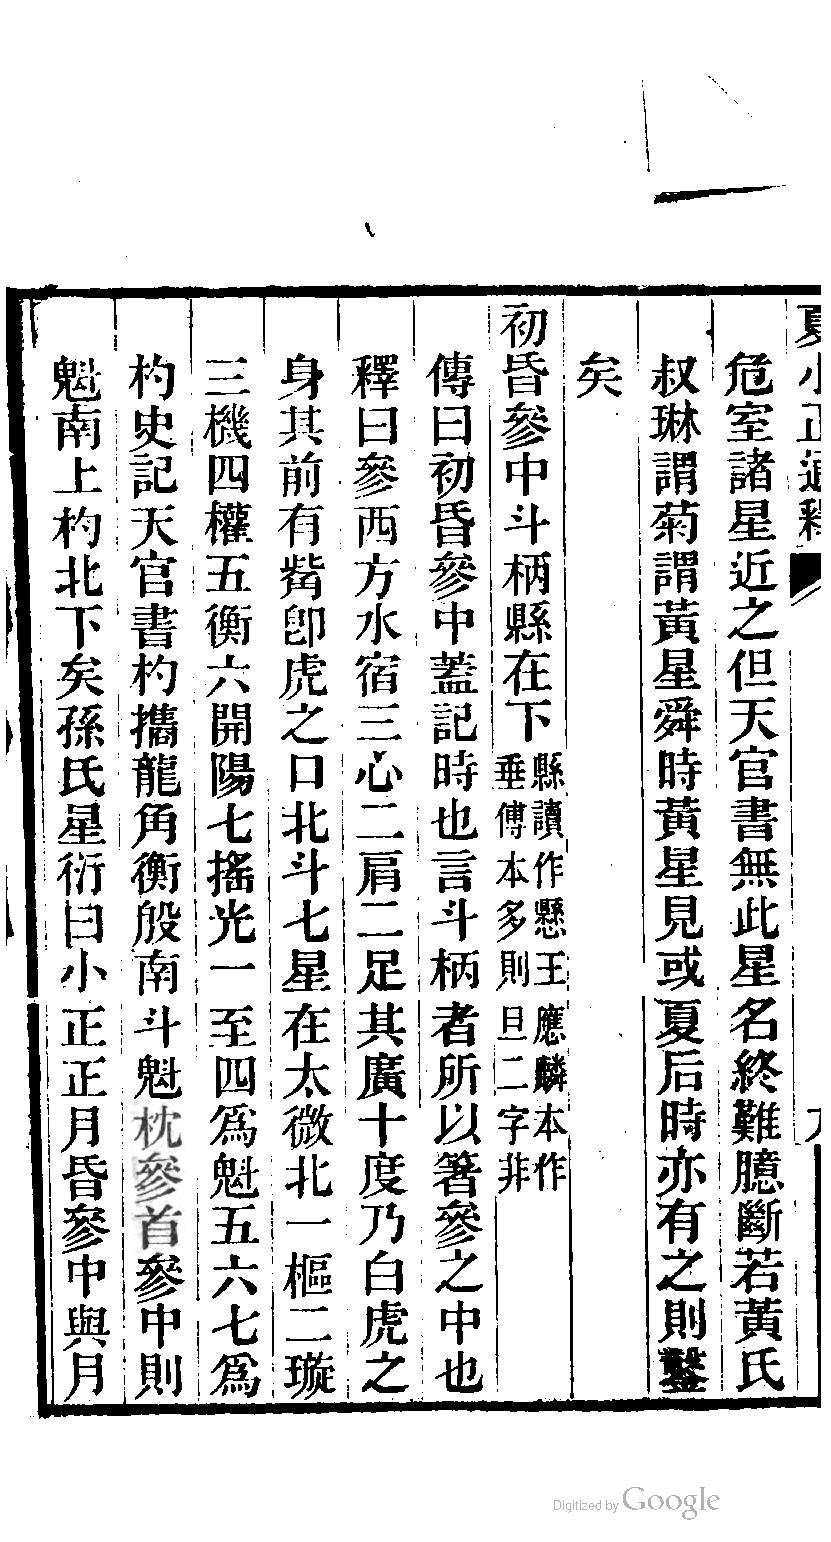 夏小正通釋
九
危室諸星近之但天官書無此星名終難臆斷若黃氏
叔琳謂菊謂黃星舜時黃星見或夏后時亦有之則鑿
矣
初昏參中斗柄縣在下縣讀作懸王應麟本作
垂傅本多則旦二字非
傳曰初昏參中蓋記時也言斗柄者所以箸參之中也
釋曰參西方水宿三心二肩二足其廣十度乃白虎之
身其前有觜卽虎之口北斗七星在太微北一樞二璇
三機四權五衡六開陽七搖光一至四爲魁五六七爲
杓史記天官書杓攜龍角衡殷南斗魁枕參首參中則
魁南上杓北下矣孫氏星衍曰小正正月昏參中與月
Digitized by Google